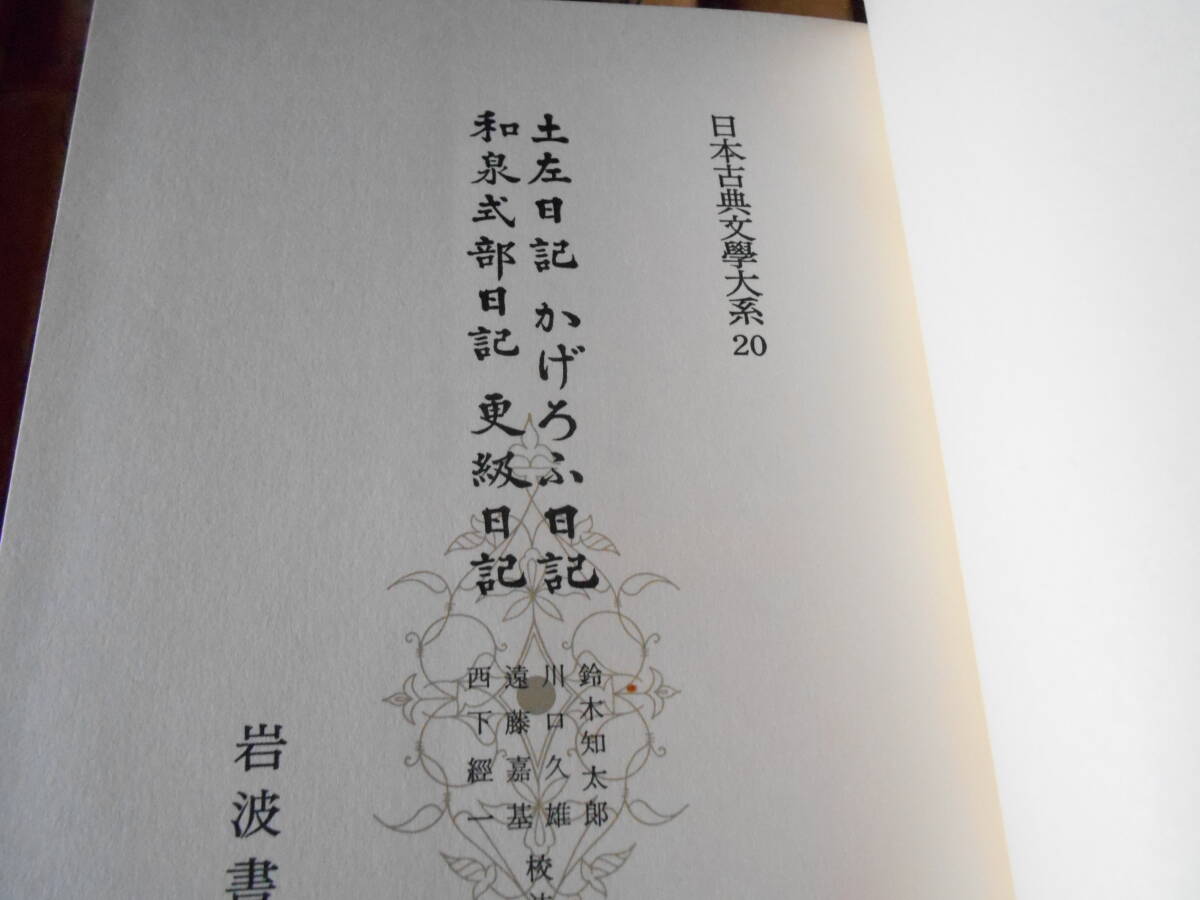 日本古典文學大系20
土左日記 かげろふ日記
和泉式部日記 更級日記
鈴木知太郎
川口久雄
遠藤嘉基
西下經一
校
岩波書